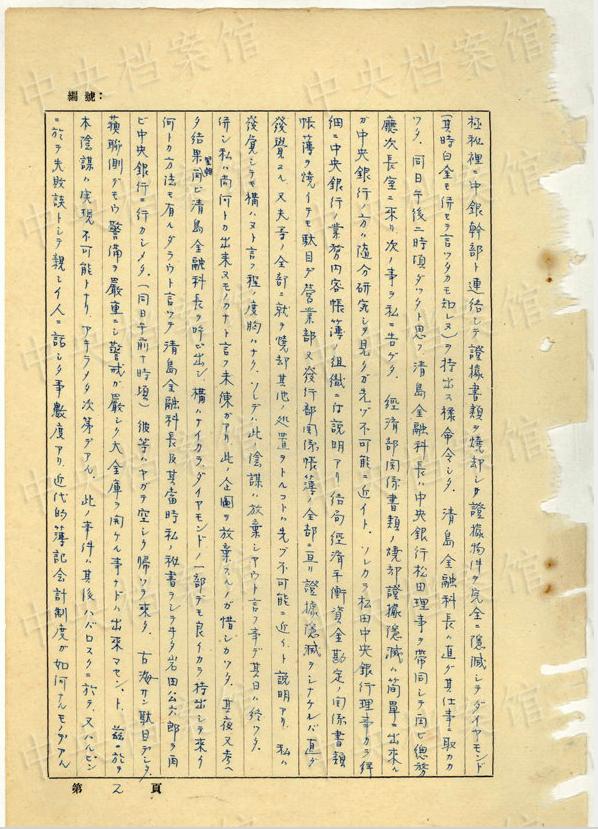 編號：
極秘裡ニ中銀幹部ト連絡シテ證據書類ヲ焼却シ證據物件ヲ完全ニ隠滅シテダイヤモンド
(其時白金モ併セテ言ツタカモ知レヌ)ヲ持出ス様命令シタ. 清島金融科長ハ直グ其仕事ニ取カカ
ツタ. 同日午後二時頃ダツタト思フ清島金融科長ハ中央銀行松田理事ヲ帯同シテ再ビ總務
廳次長室ニ來リ次ノ事ヲ私ニ告ゲタ. 經済部関係書類ノ焼却證據隠滅ハ簡單ニ出來ル
ガ中央銀行ノ方ハ随分研究シテ見タガ先ヅ不可能ニ近イト. ソレカラ松田中央銀行理事カラ詳
細ニ中央銀行ノ業務内容帳簿ノ組織ニ付説明アリ 結局經済平衡資金勘定ノ関係書類
帳簿ヲ焼イテモ駄目デ営業部又發行部関係帳簿ノ全部ニ亘リ證據隠滅ヲシナケレバ直グ
發覺スル 又夫等ノ全部ニ就テ焼却其他ノ処置ヲトルコトハ先ヅ不可能ニ近イト説明アリ. 私ハ
發覺シテモ構ハヌト言フ程ノ度胸ハナク. ソレデ此ノ陰謀ハ放棄シアウト言フ事デ其日ハ終ツタ.
併シ私ハ尚何トカ出来ヌモノカナト言フ未練ガアリ 此ノ企圖ヲ放棄スルノガ惜シカツタ. 其夜又考ヘ
タ結果翌朝再ビ清島金融科長ヲ呼ビ出シ 構ハナイカラ、ダイヤモンドノ一部デモ良イカラ 持出シテ來イ
何トカ方法モ有ルダラウト言ツテ清島金融科長及其當時私ノ秘書ヲシテヰタ岩田公六郎ヲ再
ビ中央銀行ニ行カシメタ. (同日午前十時頃) 彼等ハヤガテ空シク帰ツテ來タ. 古海サン駄目デシタ.
蘇聯側デモウ警備ヲ嚴重ニシ警戒ガ嚴シク大金庫ヲ開ケル事ナドハ出來マセン、ト. 茲ニ於テ
本陰謀ハ実現不可能トナリ アキラメタ次第デアル. 此ノ事件ハ其後ハバロスクニ於テ、又ハルピン
ニ於テ失敗談トシテ親シイ人ニ話シタ事數度アリ. 近代的簿記会計制度ガ如何ナルモノデアル
第 2 頁
中央档案馆